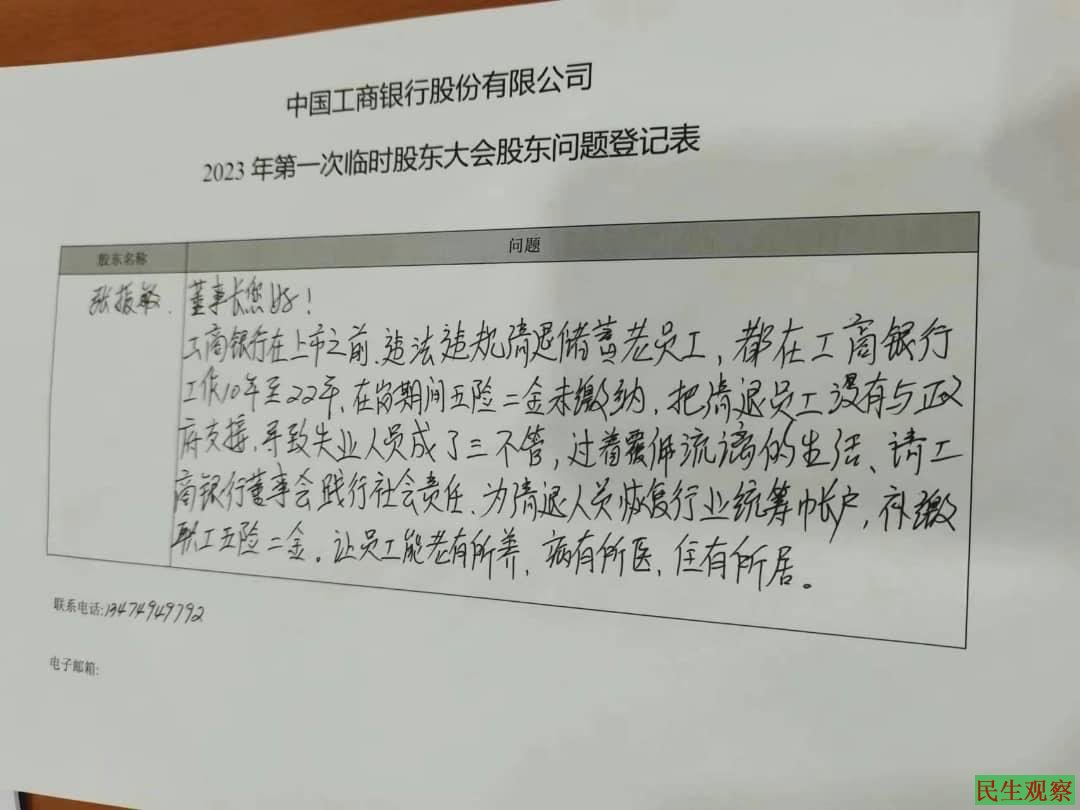 中国工商银行股份有限公司
2023年第一次临时股东大会股东问题登记表
股东名称
问题
张振敏.
董事长您好！
工商银行在上市之前、违法违规清退储蓄老员工，都在工商银行
工作10年至22年、在岗期间五险二金未缴纳，把清退员工没有与政
府交接，导致失业人员成了三不管，过着颠沛流离的生活、请工
商银行董事会践行社会责任、为清退人员恢复行业统筹帐户，补缴
职工五险二金。让员工能老有所养，病有所医，住有所居。
联系电话:13474949792
电子邮箱:
民生观察